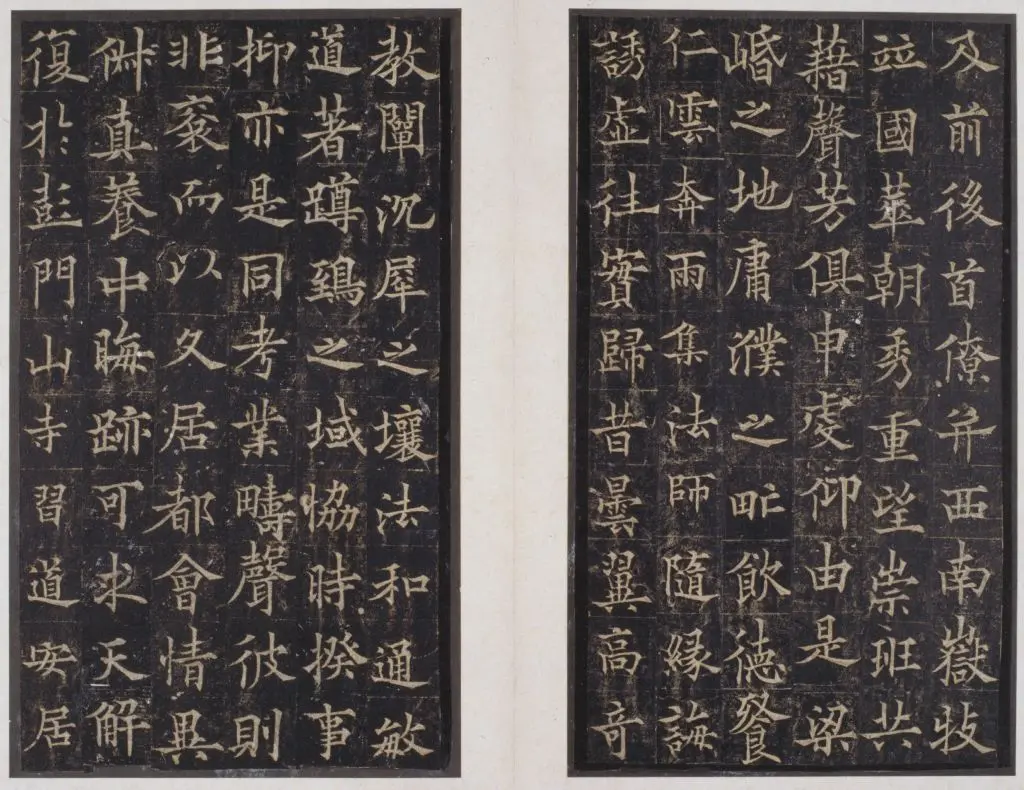 及前後首僚弁西南嶽牧
竝國華朝秀重望崇班共
藉聲芳俱申虔仰由是梁
崏之地庸濮之甿飲德飡
仁雲奔雨集法師隨緣誨
誘虛往實歸昔曇翼高奇
教闡沉犀之壤法和通敏
道著蹲鵄之域恊時揆事
抑亦是同考業疇聲彼則
非而以久居都會情異
真養中晦跡可求天解
復於彭門山寺習道安居